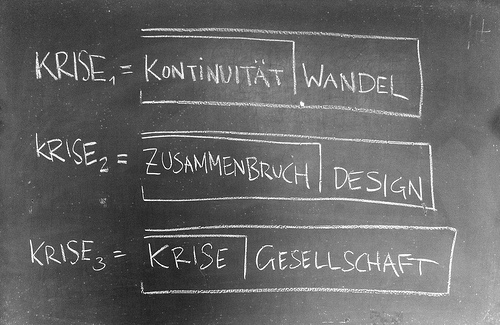 KRISE₁ = KONTINUITÄT WANDEL
KRISE₂ = ZUSAMMENBRUCH DESIGN
KRISE₃ = KRISE GESELLSCHAFT